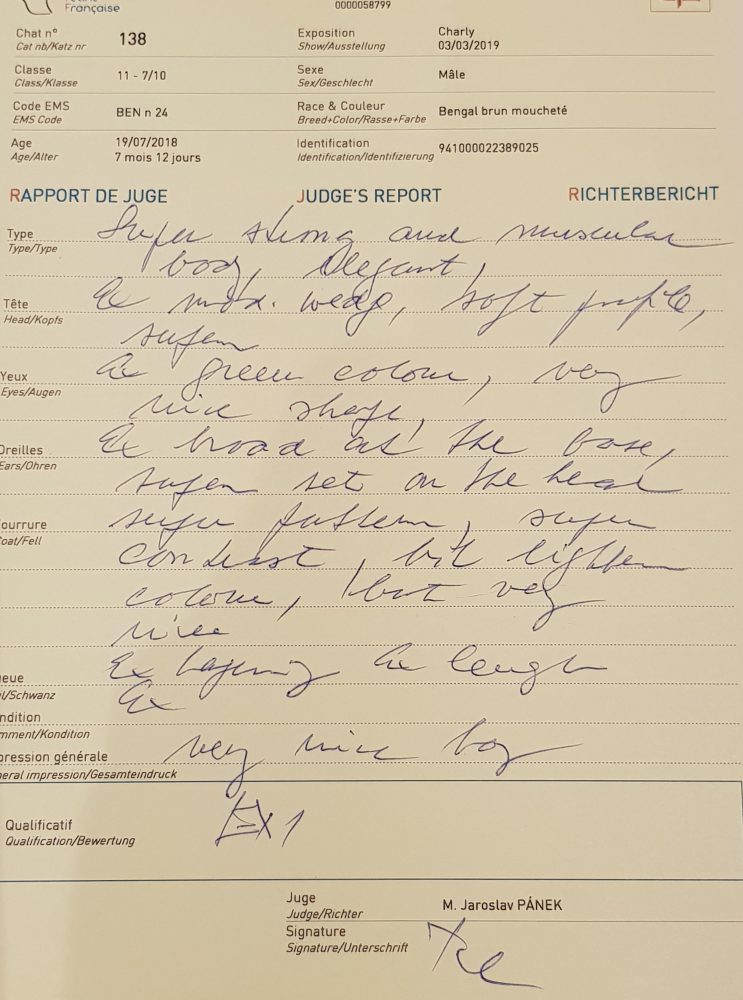 Française
0000058799
Chat n° 138 Exposition Charly
Cat nb/Katz nr Show/Ausstellung 03/03/2019
Classe 11 - 7/10 Sexe Mâle
Class/Klasse Sex/Geschlecht
Code EMS BEN n 24 Race & Couleur Bengal brun moucheté
EMS Code Breed+Color/Rasse+Farbe
Age 19/07/2018 Identification 941000022389025
Age/Alter 7 mois 12 jours Identification/Identifizierung
RAPPORT DE JUGE JUDGE'S REPORT RICHTERBERICHT
Type Super strong and muscular
Type/Type body, elegant,
Tête Ex mod. wedge, soft profile,
Head/Kopfs super
Yeux Ex green colour, very
Eyes/Augen nice shape,
Oreilles Ex broad at the base,
Ears/Ohren super set on the head
ourrure super pattern, super
oat/Fell contrast, bit lighter
colour, but very
nice
ueue Ex Ex length
il/Schwanz Ex
ndition
mment/Kondition
pression générale very nice boy
eral impression/Gesamteindruck
Qualificatif EX 1
Qualification/Bewertung
Juge M. Jaroslav PÁNEK
Judge/Richter
Signature
Signature/Unterschrift